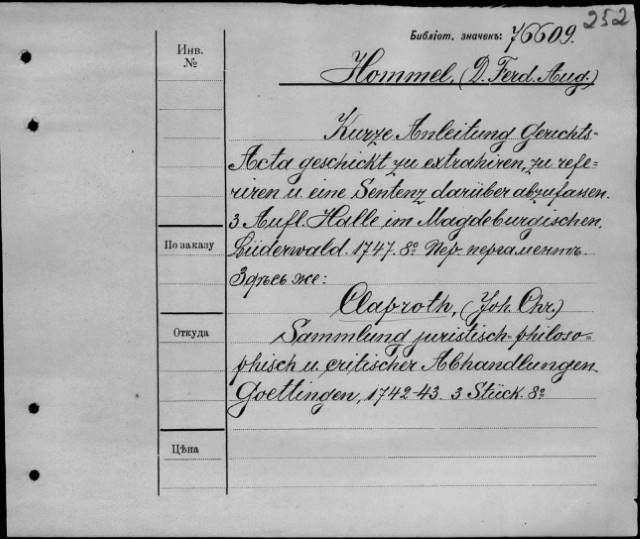 252
Библіот. значенъ: 76609.
Инв.
№
Hommel, (D. Ferd. Aug.)
Kurze Anleitung Gerichts-
Acta geschickt zu extrahiren, zu refe-
riren u. eine Sentenz darüber abzufassen.
3. Aufl. Halle im Magdeburgischen,
По заказу
Lüderwald. 1747. 8º Пер. пергаментъ.
Здѣсь же:
Claproth, (Joh. Chr.)
Откуда
Sammlung juristisch-philoso-
phisch u. critischer Abhandlungen.
Goettingen, 1742-43. 3 Stück. 8º
Цѣна